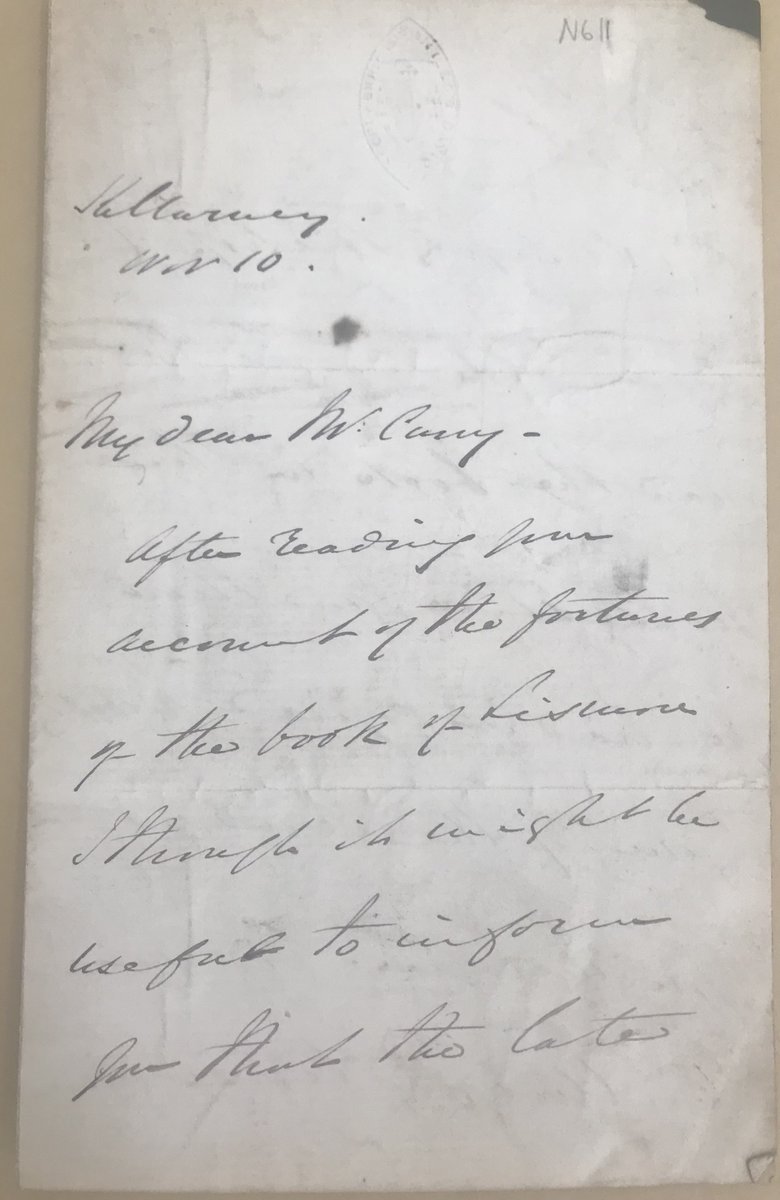 N611
Killarney.
Nov 10.
My dear Mr. Curry -
After reading your
account of the fortunes
of the book of Lismore
I though it might be
useful to inform
you that the late